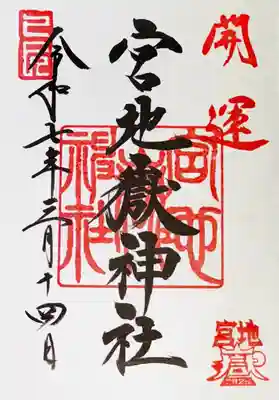 開運
宮地嶽神社
宮地嶽神社
令和七年三月十四日
宮地嶽